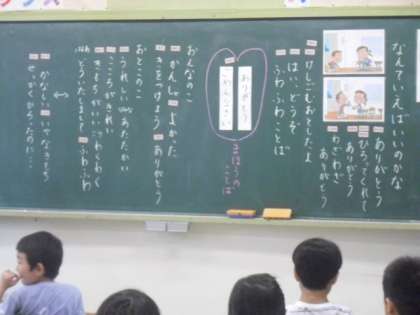 なんていえばいいのかな
ありがとう
ひろってくれて
ありがとう
わざわざ
ありがとう
けしごむおとしたよ
はい、どうぞ
ふわふわことば
ありがとう
ごめんなさい
まほうの
ことば
おんなのこ
かんしゃ
よかった
きをつけよう
ありがとう
おとこのこ
うれしい
あたたかい
こころがきれい
きもちがいい
わくわく
どういたしまして
ふわふわ
↔
かなしい
いやなきもち
せっかくひろったのに…